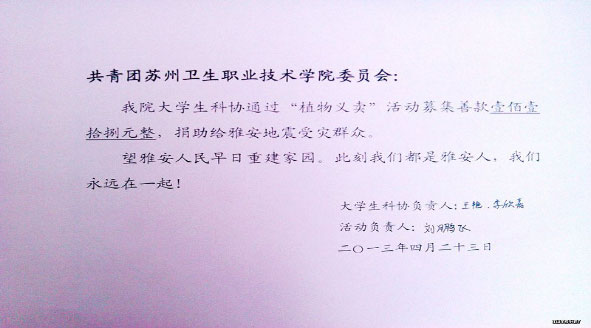 共青团苏州卫生职业技术学院委员会：
我院大学生科协通过“植物义卖”活动募集善款壹佰壹
拾捌元整，捐助给雅安地震受灾群众。
望雅安人民早日重建家园。此刻我们都是雅安人，我们
永远在一起！
大学生科协负责人：王艳、李欣嘉
活动负责人：刘鹏飞
二〇一三年四月二十三日